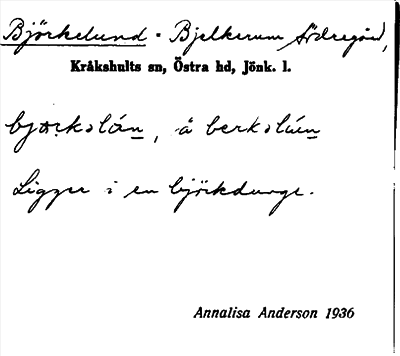 Björkelund · Bjelkerum Södregård,
Kråkshults sn, Östra hd, Jönk. l.
bjærkəlún, å berkəlúen
Ligger i en björkdunge.
Annalisa Anderson 1936